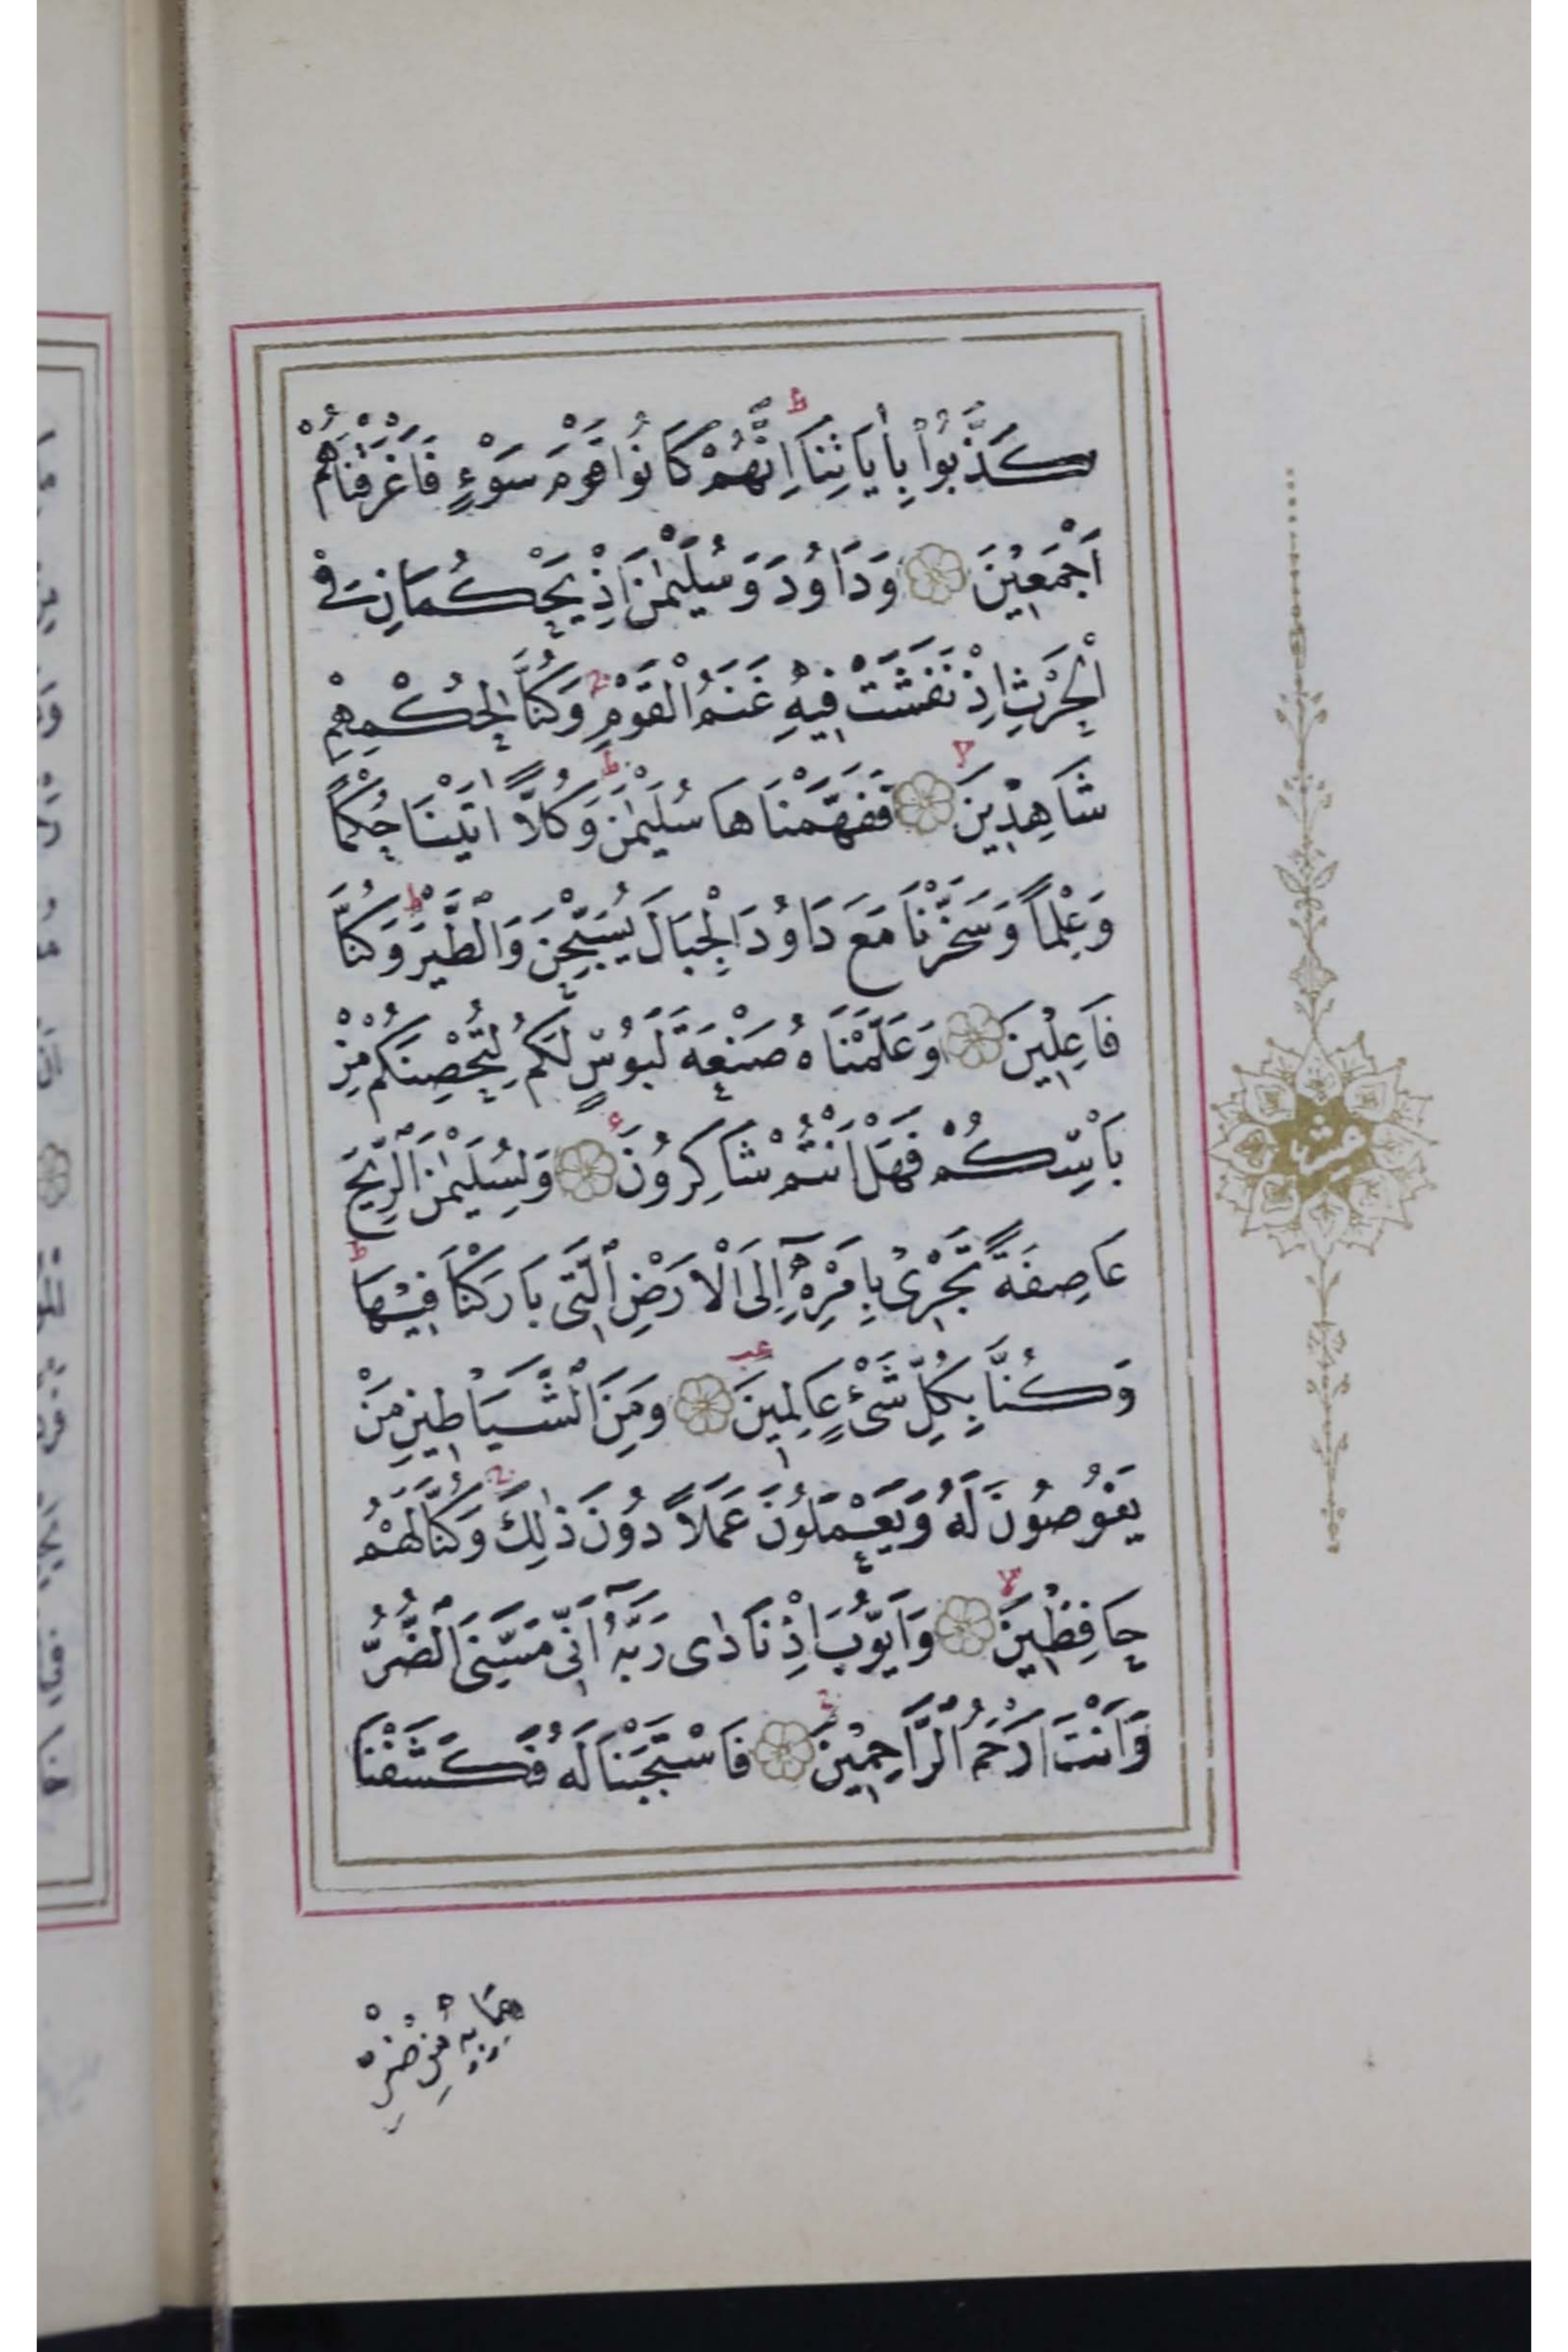 كَذَّبُوا بِاٰيَاتِنَا اِنَّهُمْ كَانُوا قَوْمَ سَوْءٍ فَاَغْرَقْنَاهُمْ
اَجْمَعِينَ وَدَاوُدَ وَسُلَيْمٰنَ اِذْ يَحْكُمَانِ فِي
الْحَرْثِ اِذْ نَفَشَتْ فِيهِ غَنَمُ الْقَوْمِ وَكُنَّا لِحُكْمِهِمْ
شَاهِدِينَ فَفَهَّمْنَاهَا سُلَيْمٰنَ وَكُلًّا اٰتَيْنَا حُكْمًا
وَعِلْمًا وَسَخَّرْنَا مَعَ دَاوُدَ الْجِبَالَ يُسَبِّحْنَ وَالطَّيْرَ وَكُنَّا
فَاعِلِينَ وَعَلَّمْنَاهُ صَنْعَةَ لَبُوسٍ لَكُمْ لِتُحْصِنَكُمْ مِنْ
بَاْسِكُمْ فَهَلْ اَنْتُمْ شَاكِرُونَ وَلِسُلَيْمٰنَ الرِّيحَ
عَاصِفَةً تَجْرِى بِاَمْرِهِ اِلَى الْاَرْضِ الَّتِى بَارَكْنَا فِيهَا
وَكُنَّا بِكُلِّ شَىْءٍ عَالِمِينَ وَمِنَ الشَّيَاطِينِ مَنْ
يَغُوصُونَ لَهُ وَيَعْمَلُونَ عَمَلًا دُونَ ذٰلِكَ وَكُنَّا لَهُمْ
حَافِظِينَ وَاَيُّوبَ اِذْ نَادٰى رَبَّهُ اَنِّى مَسَّنِىَ الضُّرُّ
وَاَنْتَ اَرْحَمُ الرَّاحِمِينَ فَاسْتَجَبْنَا لَهُ فَكَشَفْنَا
مَا بِهِ مِنْ ضُرٍّ